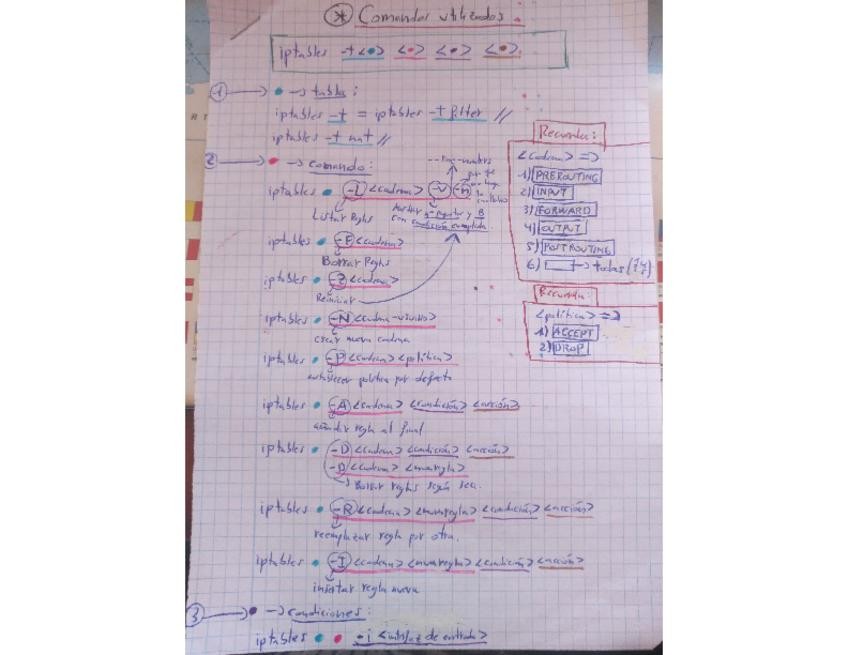 * Comandos utilizados
iptables -t <•> <•> <•> <•>
1 → • → tabla:
iptables -t = iptables -t filter //
iptables -t nat //
2 → • → comando:
iptables • -L <cadena> -v -n
Listar Reglas
con condición cumplida.
iptables • -F <cadena>
Borrar Reglas
iptables • -Z <cadena>
Reiniciar
iptables • -N <cadena-usuario>
crear nueva cadena
iptables • -P <cadena> <política>
establecer política por defecto
iptables • -A <cadena> <condición> <acción>
añadir regla al final
iptables • -D <cadena> <condición> <acción>
-D <cadena> <numregla>
→ Borrar reglas según sea.
iptables • -R <cadena> <numregla> <condición> <acción>
reemplazar regla por otra.
iptables • -I <cadena> <numregla> <condición> <acción>
insertar regla nueva
3 → • → condiciones:
iptables • • -i <interfaz de entrada>
Recuerda:
<cadena> =>
1) PREROUTING
2) INPUT
3) FORWARD
4) OUTPUT
5) POSTROUTING
6) → todas
Recuerda:
<política> =>
1) ACCEPT
2) DROP